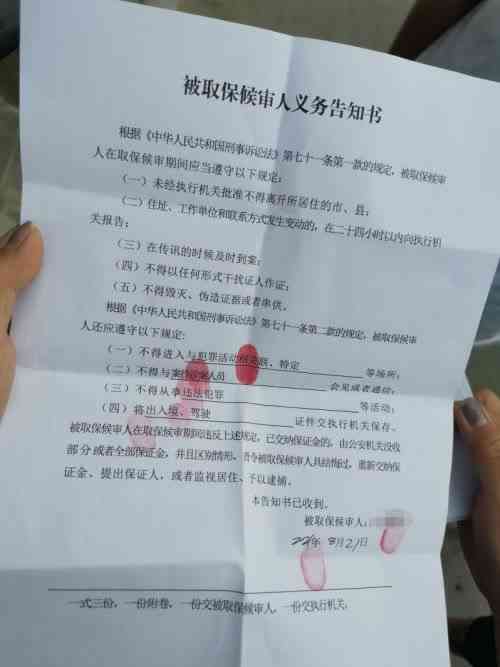 被取保候审人义务告知书
根据《中华人民共和国刑事诉讼法》第七十一条第一款的规定，被取保候审
人在取保候审期间应当遵守以下规定：
（一）未经执行机关批准不得离开所居住的市、县；
（二）住址、工作单位和联系方式发生变动的，在二十四小时以内向执行机
关报告；
（三）在传讯的时候及时到案；
（四）不得以任何形式干扰证人作证；
（五）不得毁灭、伪造证据或者串供。
根据《中华人民共和国刑事诉讼法》第七十一条第二款的规定，被取保候审
人还应遵守以下规定：
（一）不得进入与犯罪活动相关联、特定 等场所；
（二）不得与案件涉案人员 会见或者通信；
（三）不得从事违法犯罪 等活动；
（四）将出入境、驾驶 证件交执行机关保存。
被取保候审人在取保候审期间违反上述规定，已交纳保证金的，由公安机关没收
部分或者全部保证金，并且区别情形，责令被取保候审人具结悔过，重新交纳保
证金、提出保证人，或者监视居住、予以逮捕。
本告知书已收到。
被取保候审人：
年 8月21日
一式三份，一份附卷，一份交被取保候审人，一份交执行机关。